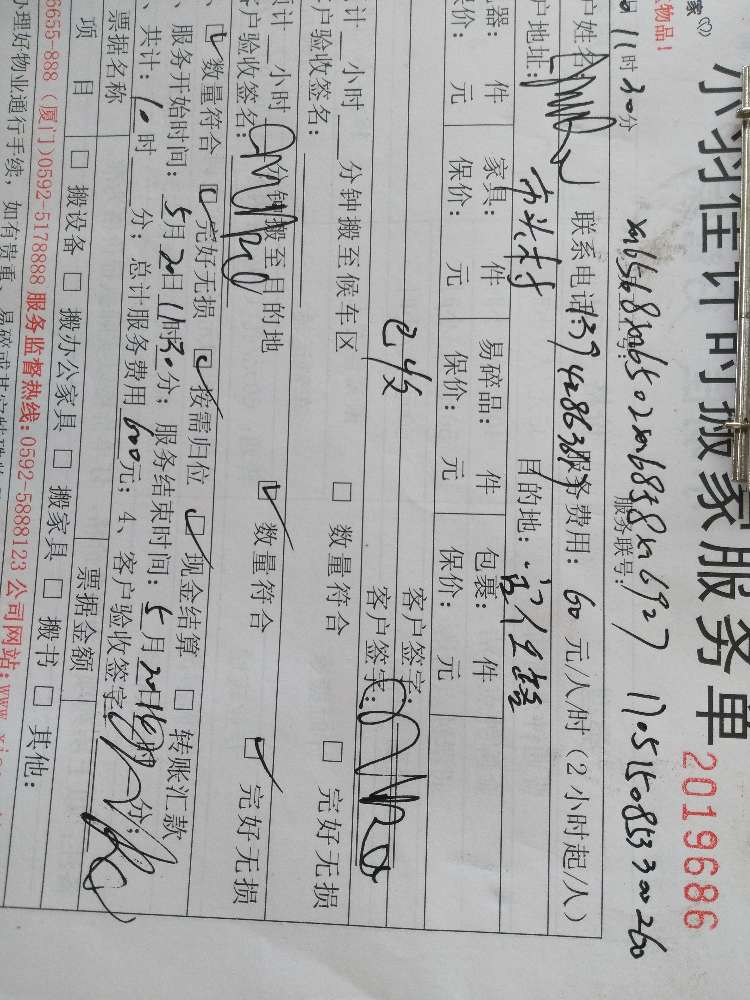 家
小羽佳计时搬家服务单 2019686
物品!
11时30分 服务联号: xm6568xm6502xm6838xm6927 170515085330260
户姓名: 联系电话: 服务费用: 60元/人/时(2小时起/人)
户地址: 目的地:
器: 件 家具: 件 易碎品: 件 包裹: 件
保价: 元 保价: 元 保价: 元 保价: 元
客户签字:
客户签字:
计 小时 分钟搬至候车区 □ 数量符合 □ 完好无损
户验收签名:
计 小时 分钟搬至目的地 □ 数量符合 □ 完好无损
客户验收签名:
、□ 数量符合 □ 完好无损 □ 按需归位 □ 现金结算 □ 转账汇款
、服务开始时间: 5月20日11时30分; 服务结束时间: 5月20日 时 分;
、共计: 10时 分; 总计服务费用600元; 4、客户验收签字:
票据名称 票据金额
项目 □ 搬设备 □ 搬办公家具 □ 搬家具 □ 搬书 □ 其他:
6655-888 (厦门)0592-5178888 服务监督热线: 0592-5888123 公司网站: www.
办理好物业通行手续, 如有贵重、易碎或其它特殊